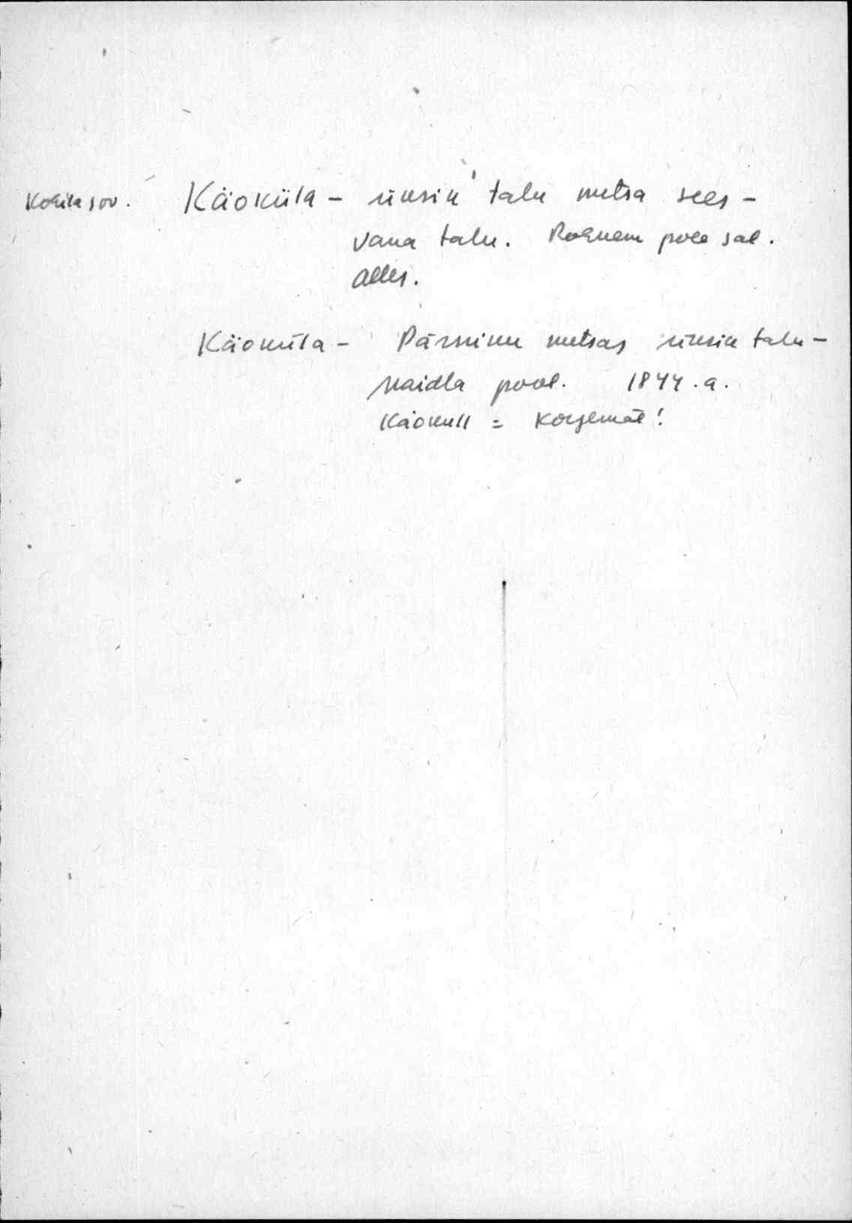 Kohila sov. Käoküla - üksik talu metsa sees -
vana talu. Rohkem pole sal.
alles.
Käoküla - Pärniku metsas üksik talu -
Maidla pool. 1844.a.
Käokull =